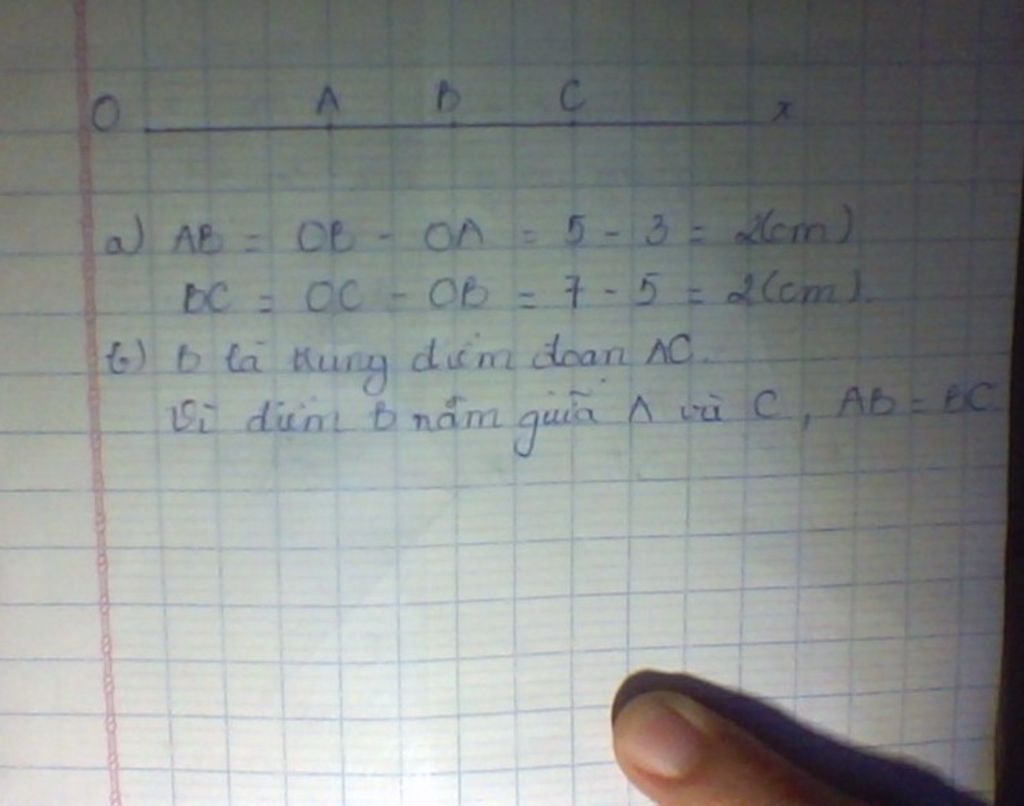 O A B C x
a) AB = OB - OA = 5 - 3 = 2(cm)
BC = OC - OB = 7 - 5 = 2(cm).
b) B là trung điểm đoạn AC.
Vì điểm B nằm giữa A và C, AB = BC